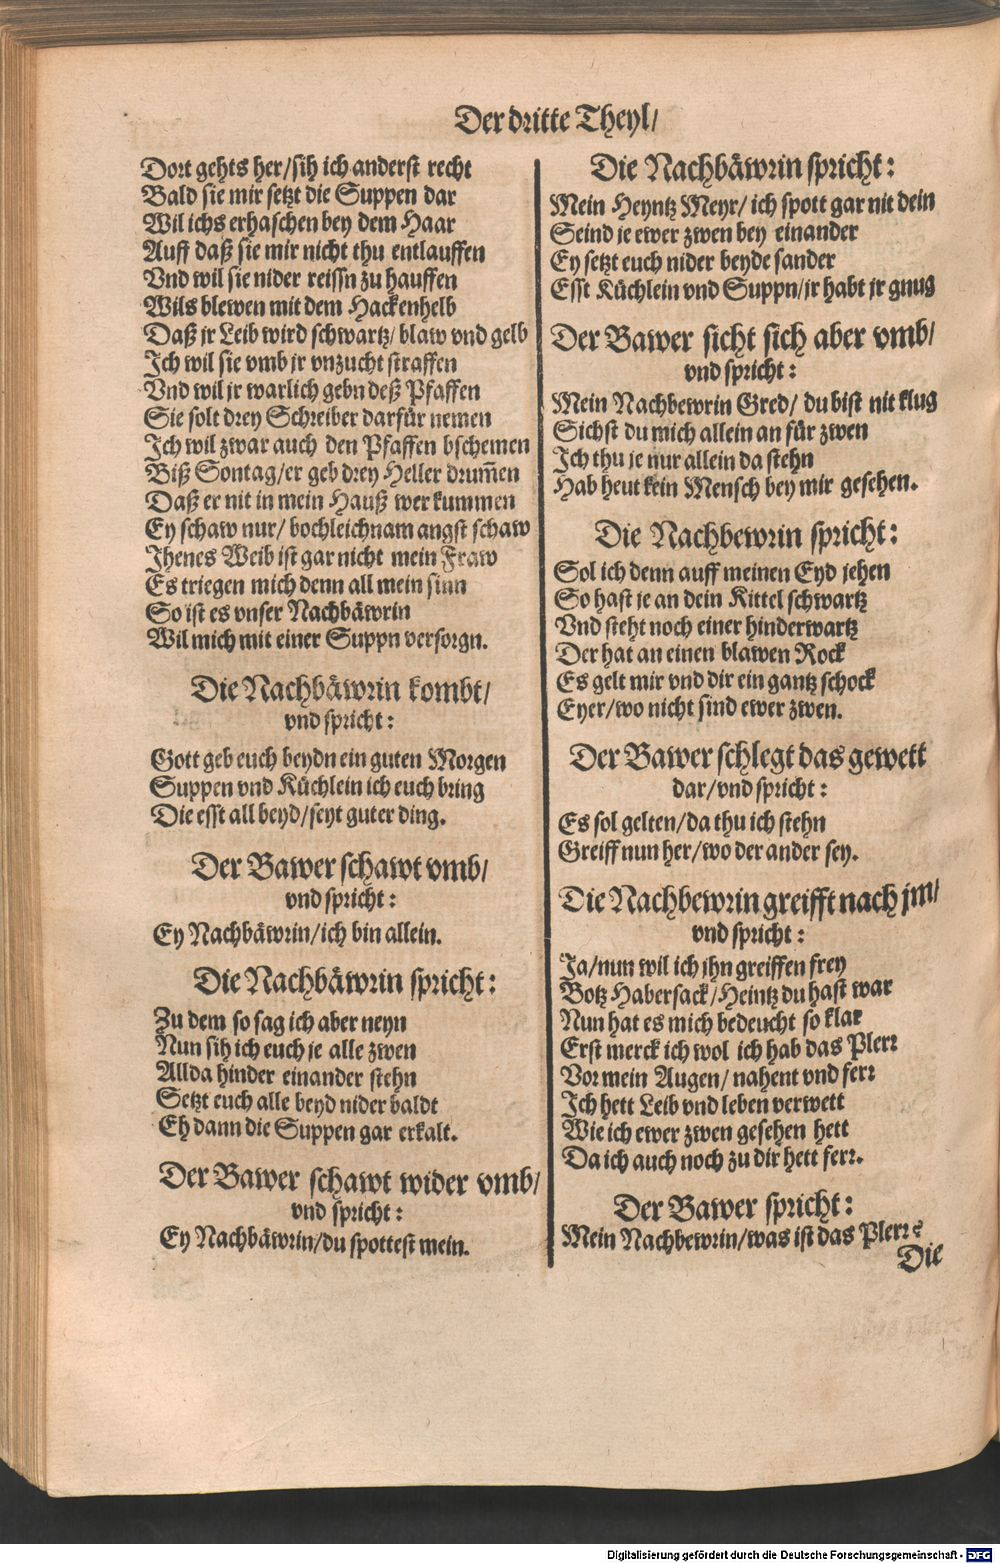 Der dritte Theyl/
Dort gehts her/sih ich anderst recht
Bald sie mir setzt die Suppen dar
Wil ichs erhaschen bey dem Haar
Auff daß sie mir nicht thu entlauffen
Vnd wil sie nider reissn zu hauffen
Wils blewen mit dem Hackenhelb
Daß jr Leib wird schwartz/ blaw vnd gelb
Ich wil sie vmb jr vnzucht straffen
Vnd wil jr warlich gebn deß Pfaffen
Sie solt drey Schreiber darfür nemen
Ich wil zwar auch den Pfaffen bschemen
Biß Sontag/er geb drey Heller drum̃en
Daß er nit in mein Hauß wer kummen
Ey schaw nur/ bochleichnam angst schaw
Ihenes Weib ist gar nicht mein Fraw
Es triegen mich denn all mein sinn
So ist es vnser Nachbäwrin
Wil mich mit einer Suppn versorgn.
Die Nachbäwrin kombt/
vnd spricht:
Gott geb euch beydn ein guten Morgen
Suppen vnd Küchlein ich euch bring
Die esst all beyd/seyt guter ding.
Der Bawer schawt vmb/
vnd spricht:
Ey Nachbäwrin/ich bin allein.
Die Nachbäwrin spricht:
Zu dem so sag ich aber neyn
Nun sih ich euch je alle zwen
Allda hinder einander stehn
Setzt euch alle beyd nider baldt
Eh dann die Suppen gar erkalt.
Der Bawer schawt wider vmb/
vnd spricht:
Ey Nachbäwrin/du spottest mein.
Die Nachbäwrin spricht:
Mein Heyntz Meyr/ ich spott gar nit dein
Seind je ewer zwen bey einander
Ey setzt euch nider beyde sander
Esst Küchlein vnd Suppn/jr habt jr gnug
Der Bawer sicht sich aber vmb/
vnd spricht:
Mein Nachbewrin Gred/ du bist nit klug
Sichst du mich allein an für zwen
Ich thu je nur allein da stehn
Hab heut kein Mensch bey mir gesehen.
Die Nachbewrin spricht:
Sol ich denn auff meinen Eyd jehen
So hast je an dein Kittel schwartz
Vnd steht noch einer hinderwartz
Der hat an einen blawen Rock
Es gelt mir vnd dir ein gantz schock
Eyer/wo nicht sind ewer zwen.
Der Bawer schlegt das gewett
dar/vnd spricht:
Es sol gelten/da thu ich stehn
Greiff nun her/wo der ander sey.
Die Nachbewrin greifft nach jm/
vnd spricht:
Ja/nun wil ich jhn greiffen frey
Botz Habersack/Heintz du hast war
Nun hat es mich bedeucht so klar
Erst merck ich wol ich hab das Plerr
Vor mein Augen/ nahent vnd ferr
Ich hett Leib vnd leben verwett
Wie ich ewer zwen gesehen hett
Da ich auch noch zu dir hett ferr.
Der Bawer spricht:
Mein Nachbewrin/was ist das Plerr?
Die
Digitalisierung gefördert durch die Deutsche Forschungsgemeinschaft - DFG